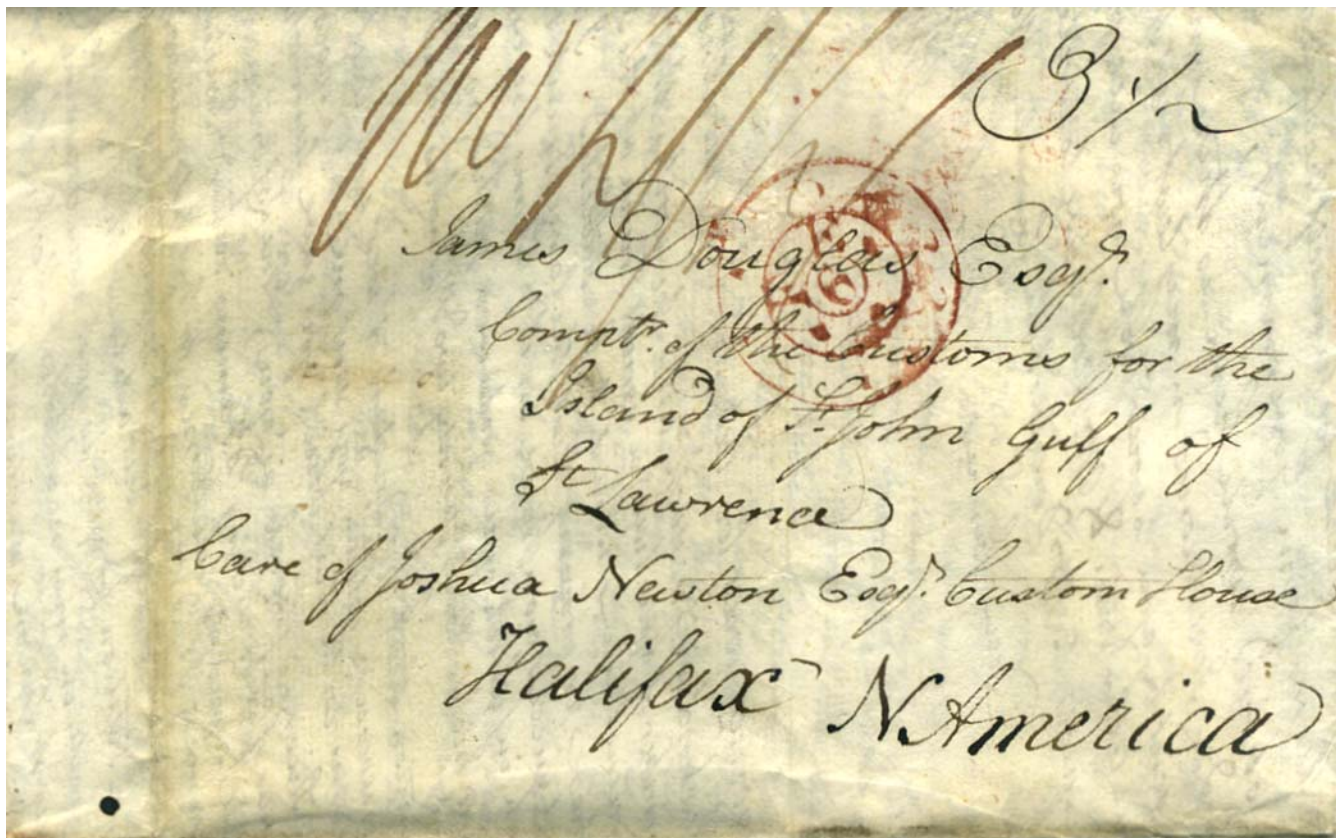 3 1/2
James Douglas Esqr.
Comptr. of the Customs for the
Island of St. John Gulf of
St Lawrence
Care of Joshua Newton Esqr. Custom House
Halifax N. America
6